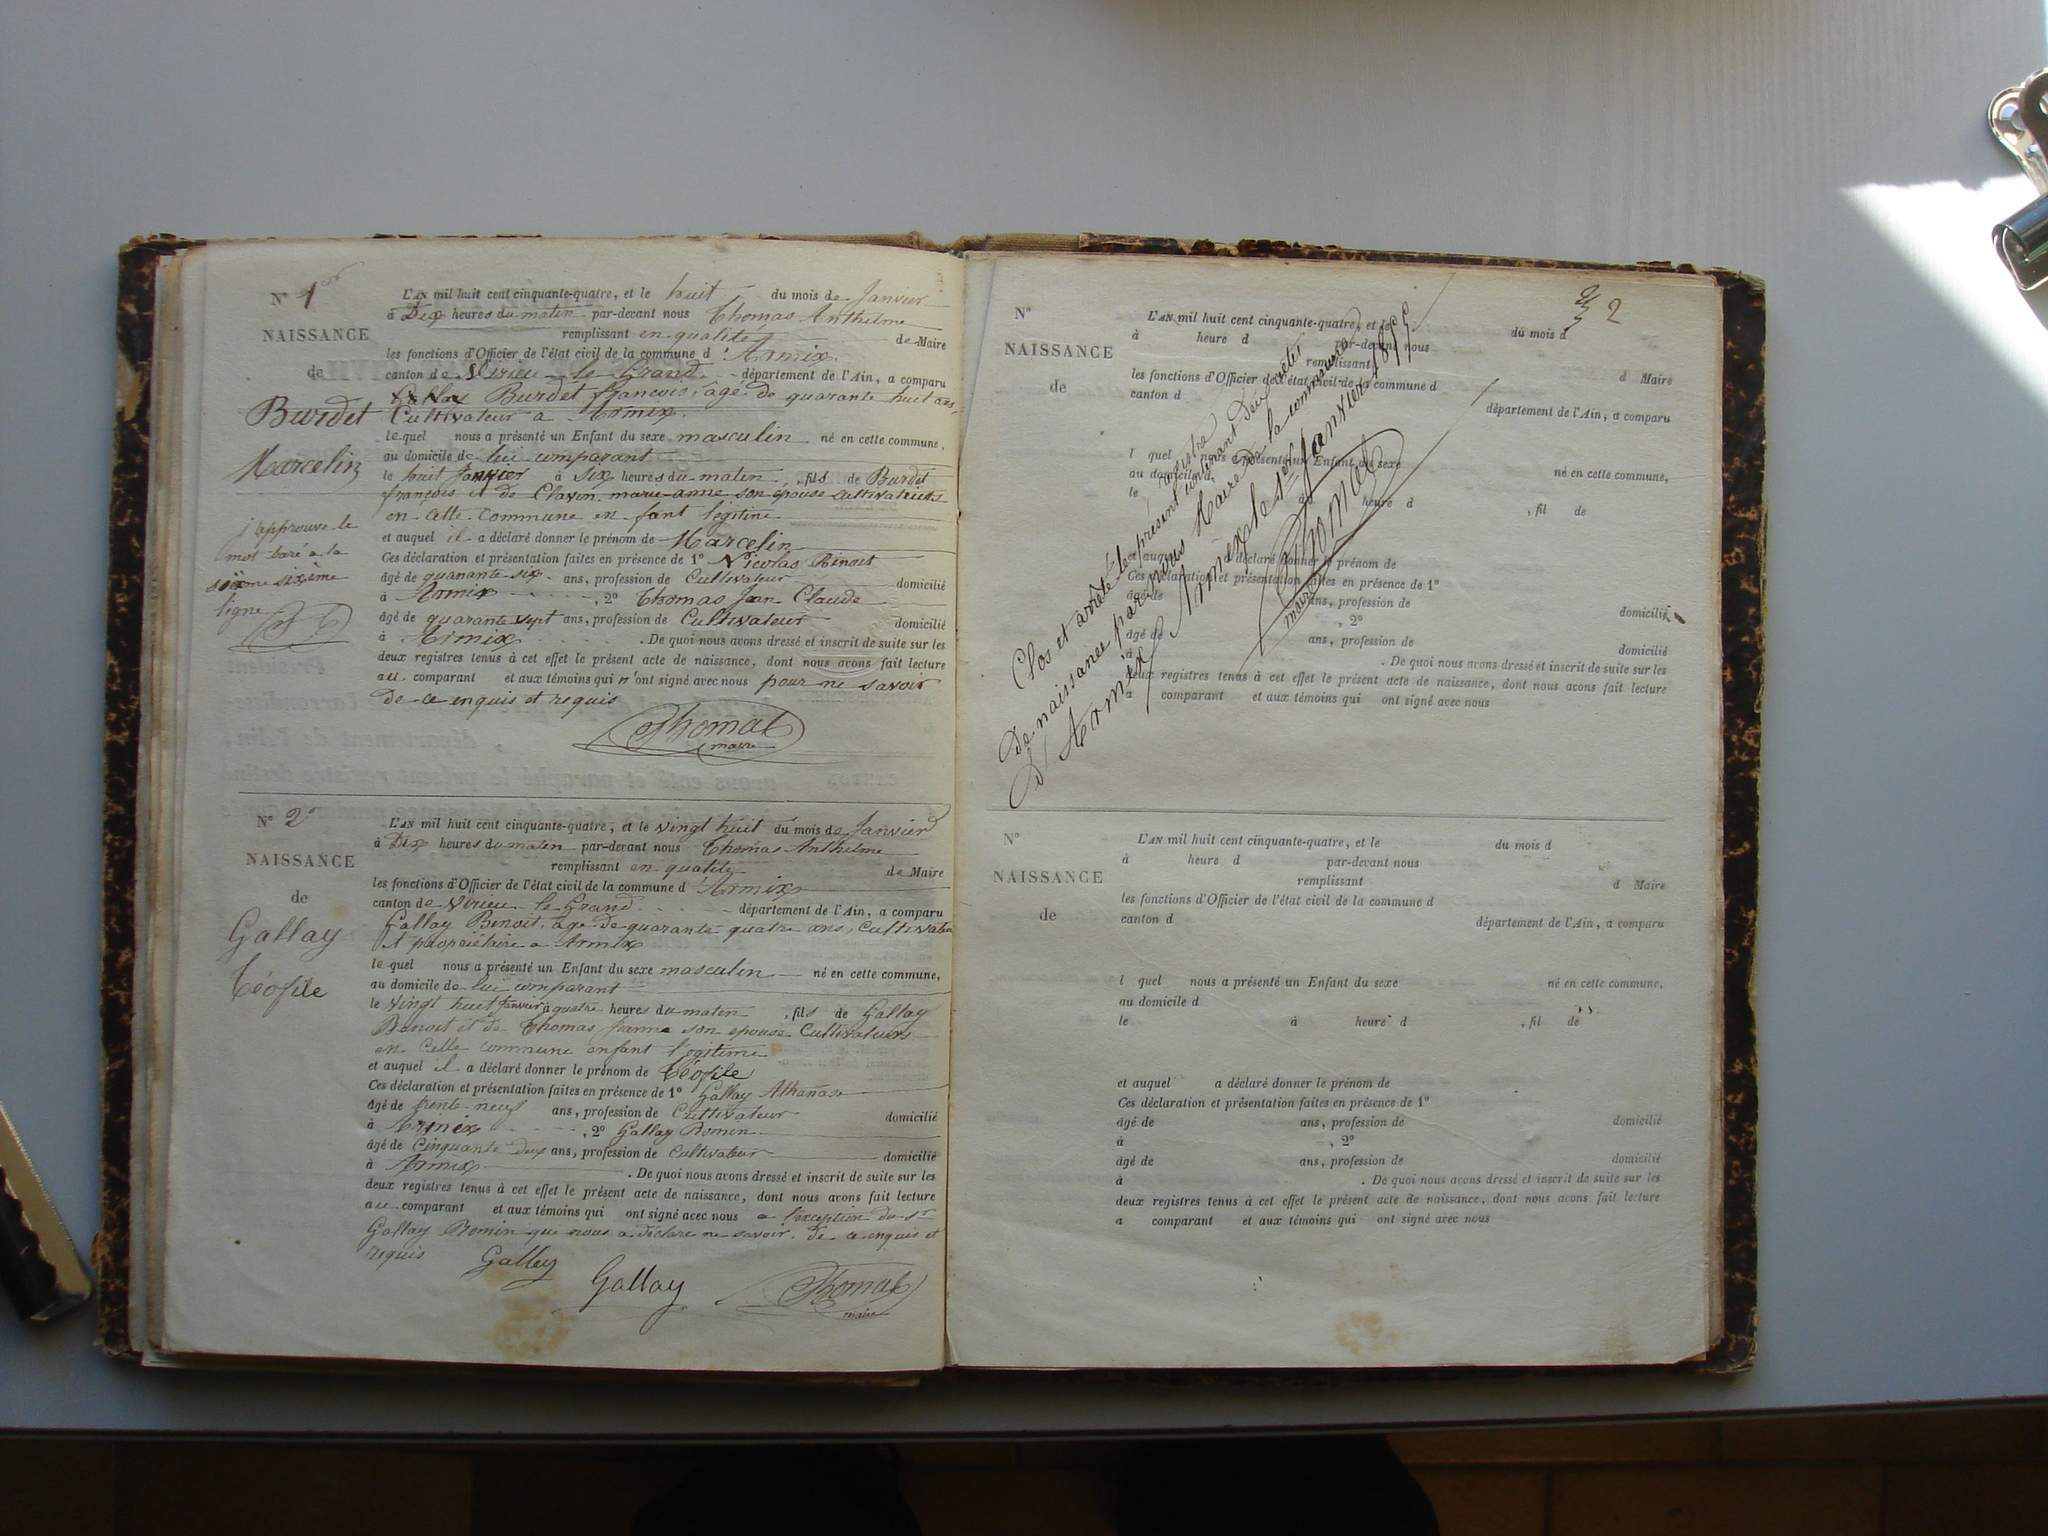 N° 1er
NAISSANCE
de
Burdet
Marcelin
j'approuve le
mot baré a la
sixième
ligne
L'AN mil huit cent cinquante-quatre, et le huit du mois de Janvier
à Dix heures du matin par-devant nous Thomas Anthelme
remplissant en qualité de Maire
les fonctions d'Officier de l'état civil de la commune d'Armix.
canton de Virieu le Grand département de l'Ain, a comparu
Burdet françois, âgé de quarante huit ans,
Cultivateur a Armix.
lequel nous a présenté un Enfant du sexe masculin né en cette commune,
au domicile de lui comparant
le huit Janvier à six heures du matin, fils de Burdet
françois et de Clavin marie-anne son épouse cultivateurs
en cette commune en fant legitine
et auquel il a déclaré donner le prénom de Marcelin
Ces déclaration et présentation faites en présence de 1° Nicolas Benoit
âgé de quarante-six ans, profession de Cultivateur domicilié
à Armix, 2° Thomas Jean Claude
âgé de quarante sept ans, profession de Cultivateur domicilié
à Armix. De quoi nous avons dressé et inscrit de suite sur les
deux registres tenus à cet effet le présent acte de naissance, dont nous avons fait lecture
au comparant et aux témoins qui n'ont signé avec nous pour ne savoir
de ce enquis et requis
Thomas
maire
N° 2e
NAISSANCE
de
Gallay
Téofile
L'AN mil huit cent cinquante-quatre, et le vingt huit du mois de Janvier
à Dix heures du maten par-devant nous Thomas Anthelme
remplissant en qualite de Maire
les fonctions d'Officier de l'état civil de la commune d'Armix
canton de Virieu le Grand département de l'Ain, a comparu
Gallay Benoit, âgé de quarante quatre ans, Cultivateu
et propriétaire a Armix
lequel nous a présenté un Enfant du sexe masculin né en cette commune,
au domicile de lui comparant
le vingt huit Janvier à quatre heures du matin, fils de Gallay
Benoit et de Thomas Jeanne son epouse Cultivateurs
en cette commune enfant legitime
et auquel il a déclaré donner le prénom de Téofile
Ces déclaration et présentation faites en présence de 1° Gallay Athanase
âgé de trente-neuf ans, profession de Cultivateur domicilié
à Armix, 2° Gallay Romin
âgé de Cinquante deux ans, profession de Cultivateur domicilié
à Armix. De quoi nous avons dressé et inscrit de suite sur les
deux registres tenus à cet effet le présent acte de naissance, dont nous avons fait lecture
au comparant et aux témoins qui ont signé avec nous a l'exception du sr
Gallay Romin que nous a declare ne savoir. de ce enquis et
requis
Galley
Gallay
Thomas
maire
2
N°
NAISSANCE
de
L'AN mil huit cent cinquante-quatre, et le du mois d
à heure d par-devant nous
remplissant d Maire
les fonctions d'Officier de l'état civil de la commune d
canton d département de l'Ain, a comparu
l quel nous a présenté un Enfant du sexe né en cette commune,
au domicile d
le à heure d, fil de
et auquel a déclaré donner le prénom de
Ces déclaration et présentation faites en présence de 1°
âgé de ans, profession de domicilié
à, 2°
âgé de ans, profession de domicilié
à. De quoi nous avons dressé et inscrit de suite sur les
deux registres tenus à cet effet le présent acte de naissance, dont nous avons fait lecture
a comparant et aux témoins qui ont signé avec nous
Clos et arrêté le présent registre
De naissance contenant deux actes
par nous Maire de la commune
D'Armix Armix le 1er Janvier 1855
Thomas
maire
N°
NAISSANCE
de
L'AN mil huit cent cinquante-quatre, et le du mois d
à heure d par-devant nous
remplissant d Maire
les fonctions d'Officier de l'état civil de la commune d
canton d département de l'Ain, a comparu
l quel nous a présenté un Enfant du sexe né en cette commune,
au domicile d
le à heure d, fil de
et auquel a déclaré donner le prénom de
Ces déclaration et présentation faites en présence de 1°
âgé de ans, profession de domicilié
à, 2°
âgé de ans, profession de domicilié
à. De quoi nous avons dressé et inscrit de suite sur les
deux registres tenus à cet effet le présent acte de naissance, dont nous avons fait lecture
a comparant et aux témoins qui ont signé avec nous